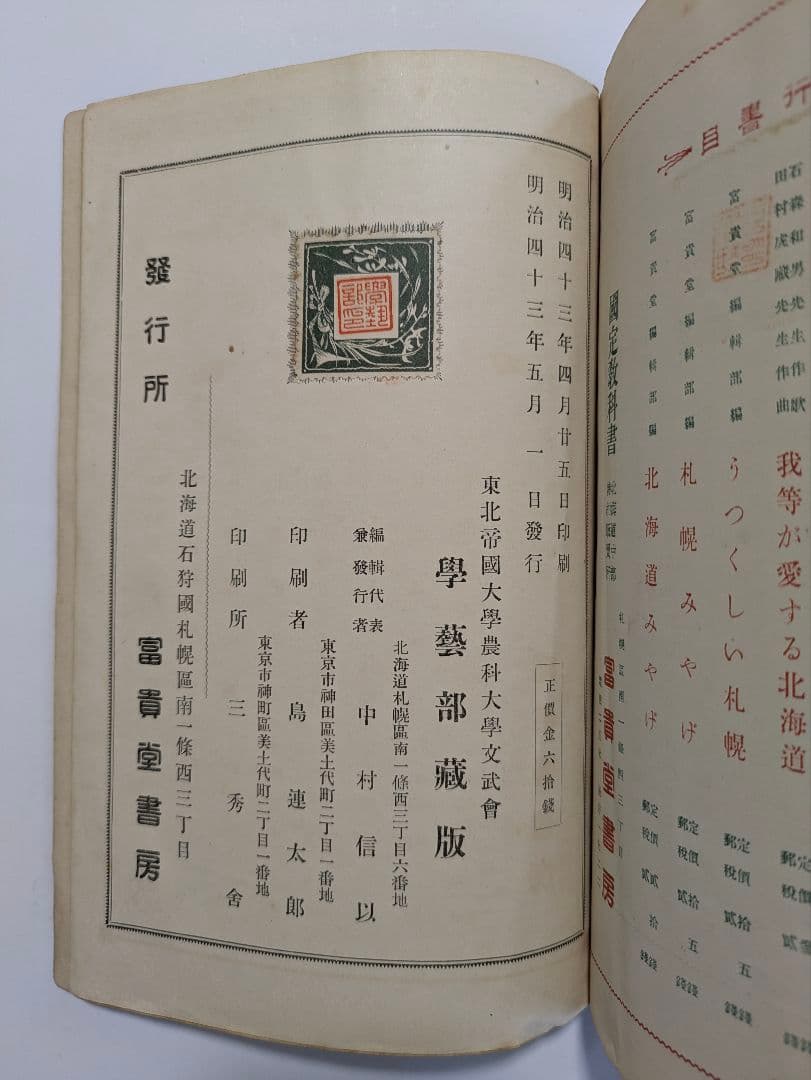 行書目
石森和男先生作歌
田村虎蔵先生作曲
我等が愛する北海道
富貴堂編輯部編
うつくしい札幌
定價貳拾五錢
郵税貳錢
富貴堂編輯部編
札幌みやげ
定價貳拾五錢
郵税貳錢
富貴堂編輯部編
北海道みやげ
定價貳拾錢
郵税貳錢
國定教科書
富貴堂書房
明治四十三年四月廿五日印刷
明治四十三年五月一日發行
正價金六拾錢
東北帝國大學農科大學文武會
學藝部藏版
北海道札幌區南一條西三丁目六番地
編輯代表
兼發行者
中村信以
東京市神田區美土代町二丁目一番地
印刷者 島連太郎
東京市神町區美土代町二丁目一番地
印刷所 三秀舍
北海道石狩國札幌區南一條西三丁目
發行所 富貴堂書房
學藝部印